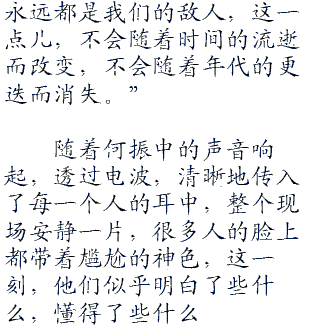 永远都是我们的敌人，这一
点儿，不会随着时间的流逝
而改变，不会随着年代的更
迭而消失。”
随着何振中的声音响
起，透过电波，清晰地传入
了每一个人的耳中，整个现
场安静一片，很多人的脸上
都带着尴尬的神色，这一
刻，他们似乎明白了些什
么，懂得了些什么